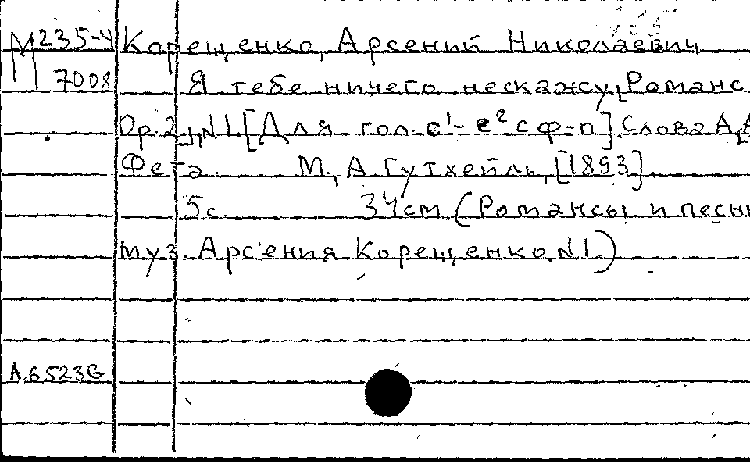 М235-4 Корещенко, Арсений Николаевич
7008 Я тебе ничего нескажу, Романс
Op. 2, N1 [Для гол. c¹- e² с ф-п] Слова А,А
Фета М., А. Гутхейль, [1893]
5с. 34см (Романсы и песни
муз. Арсения Корещенко. N1.)
А.6523G